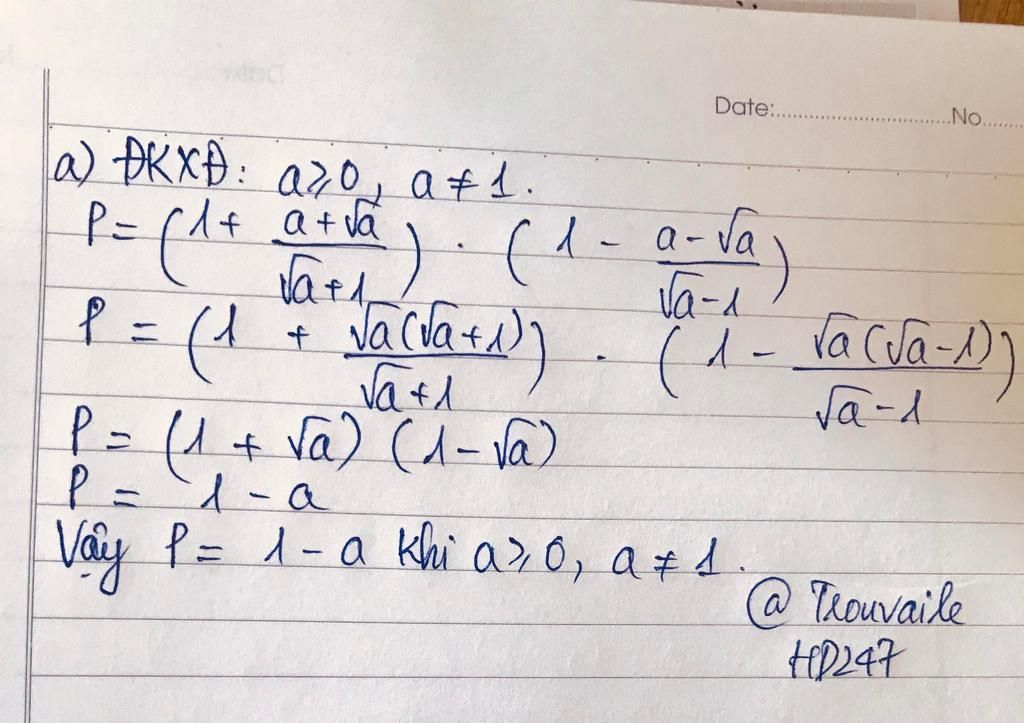 Date:..............................No.......
a) ĐKXĐ: a ⩾ 0, a ≠ 1.
P = (1 + (a + √a)/(√a + 1)) . (1 - (a - √a)/(√a - 1))
P = (1 + √a(√a + 1)/(√a + 1)) . (1 - √a(√a - 1)/(√a - 1))
P = (1 + √a) (1 - √a)
P = 1 - a
Vậy P = 1 - a khi a ⩾ 0, a ≠ 1.
@ Trouvaile
HD247